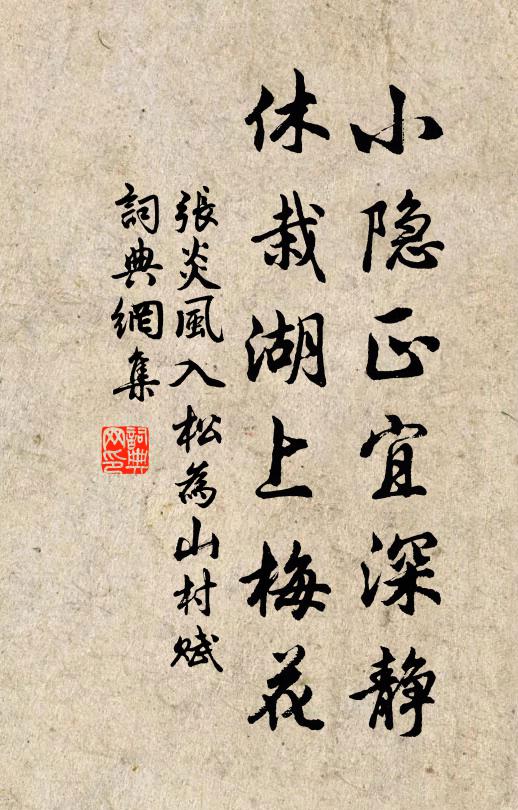 小隐正宜深静
休栽湖上梅花
張炎風入松為山村赋
詞典網集
詞典网印